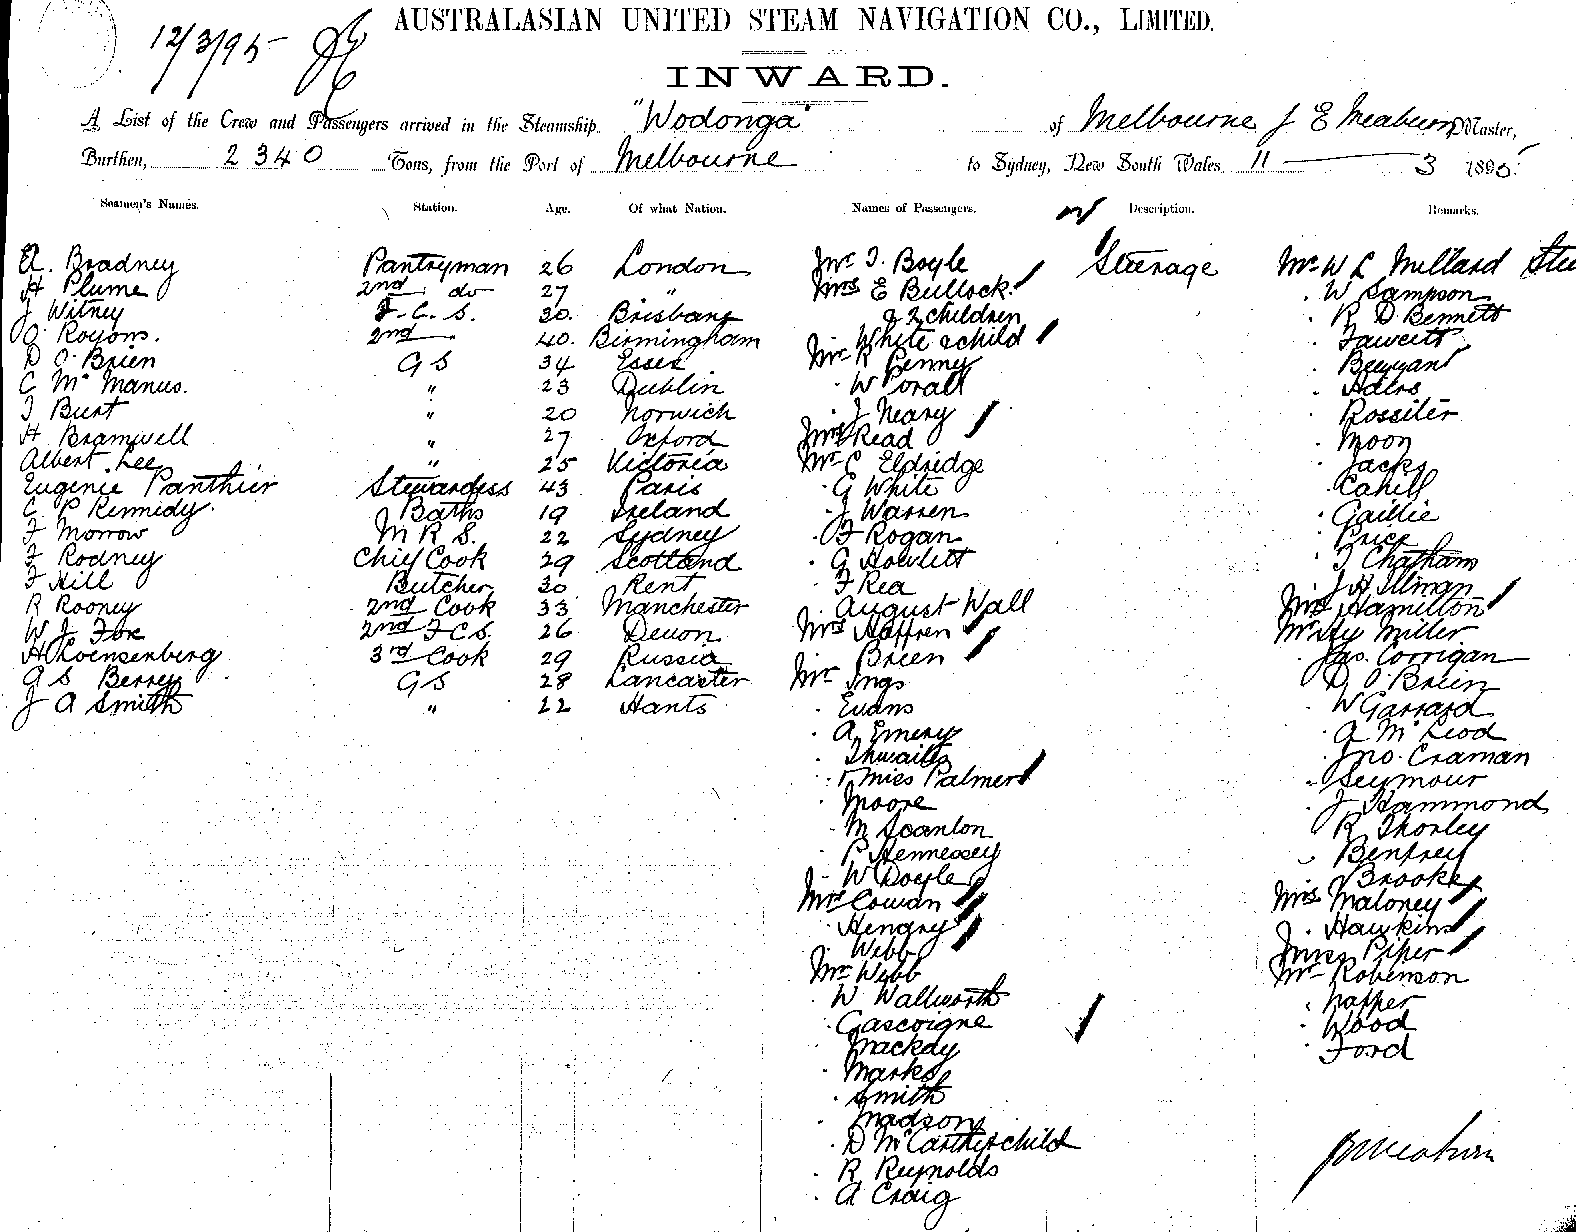 AUSTRALASIAN UNITED STEAM NAVIGATION CO., LIMITED.
12/3/95
INWARD.
A List of the Crew and Passengers arrived in the Steamship "Wodonga" of Melbourne J E Meaburn Master,
Burthen, 2340 Tons, from the Port of Melbourne to Sydney, New South Wales 11 3 1895
Seamen's Names. Station. Age. Of what Nation. Names of Passengers. Description. Remarks.
A. Bradney Pantryman 26 London
H Plume 2nd do 27 "
J Witney F.C.S. 30. Brisbane
O Royons. 2nd 40. Birmingham
D O'Brien G S 34 Essex
C McManus. " 23 Dublin
T Burt " 20 Norwich
H Bramwell " 27 Oxford
Albert Lee " 25 Victoria
Eugenie Panthier Stewardess 43 Paris
C P Kennedy. Baths 19 Ireland
F Morrow M R S. 22 Sydney
F Rodney Chief Cook 29 Scotland
F Hill Butcher 30 Kent
R Rooney 2nd Cook 33 Manchester
W J Fox 2nd F.C.S. 26 Devon
H Loensenberg 3rd Cook 29 Russia
G S Berrey G S 28 Lancaster
J A Smith " 22 Hants
Mr T. Boyle Steerage
Mrs E Bullock
& 2 children
White & child
Mr R Penny
W Corall
J Neary
Mrs Read
Mr C Eldridge
G White
J Warren
F Rogan
G Howlett
F Rea
August Wall
Mrs Haffren
Breen
Mr Ings
Evans
A Emery
Thwaites
Miss Palmer
Moore
M Scanlon
P Hennessey
W Doyle
Mrs Cowan
Hengry
Webb
Mr Webb
W Wallworth
Gascoigne
Mackay
Marks
Smith
Madson
D McCarthy & child
R Reynolds
A Craig
Mr W L Millard
W Sampson
R D Bennett
Fawcett
Adlrs
Rossiter
Moon
Jacks
Cahill
Gaillie
Price
T Chatham
J H Illman
Mrs Hamilton
Mr Hy Miller
Jas. Corrigan
D O'Brien
W Garrard
A McLeod
Jno. Craman
Seymour
J Hammond
R Thorley
Benfrey
Brooke
Mrs Maloney
Hawkins
Miss Piper
Mr Robinson
Napper
Wood
Ford